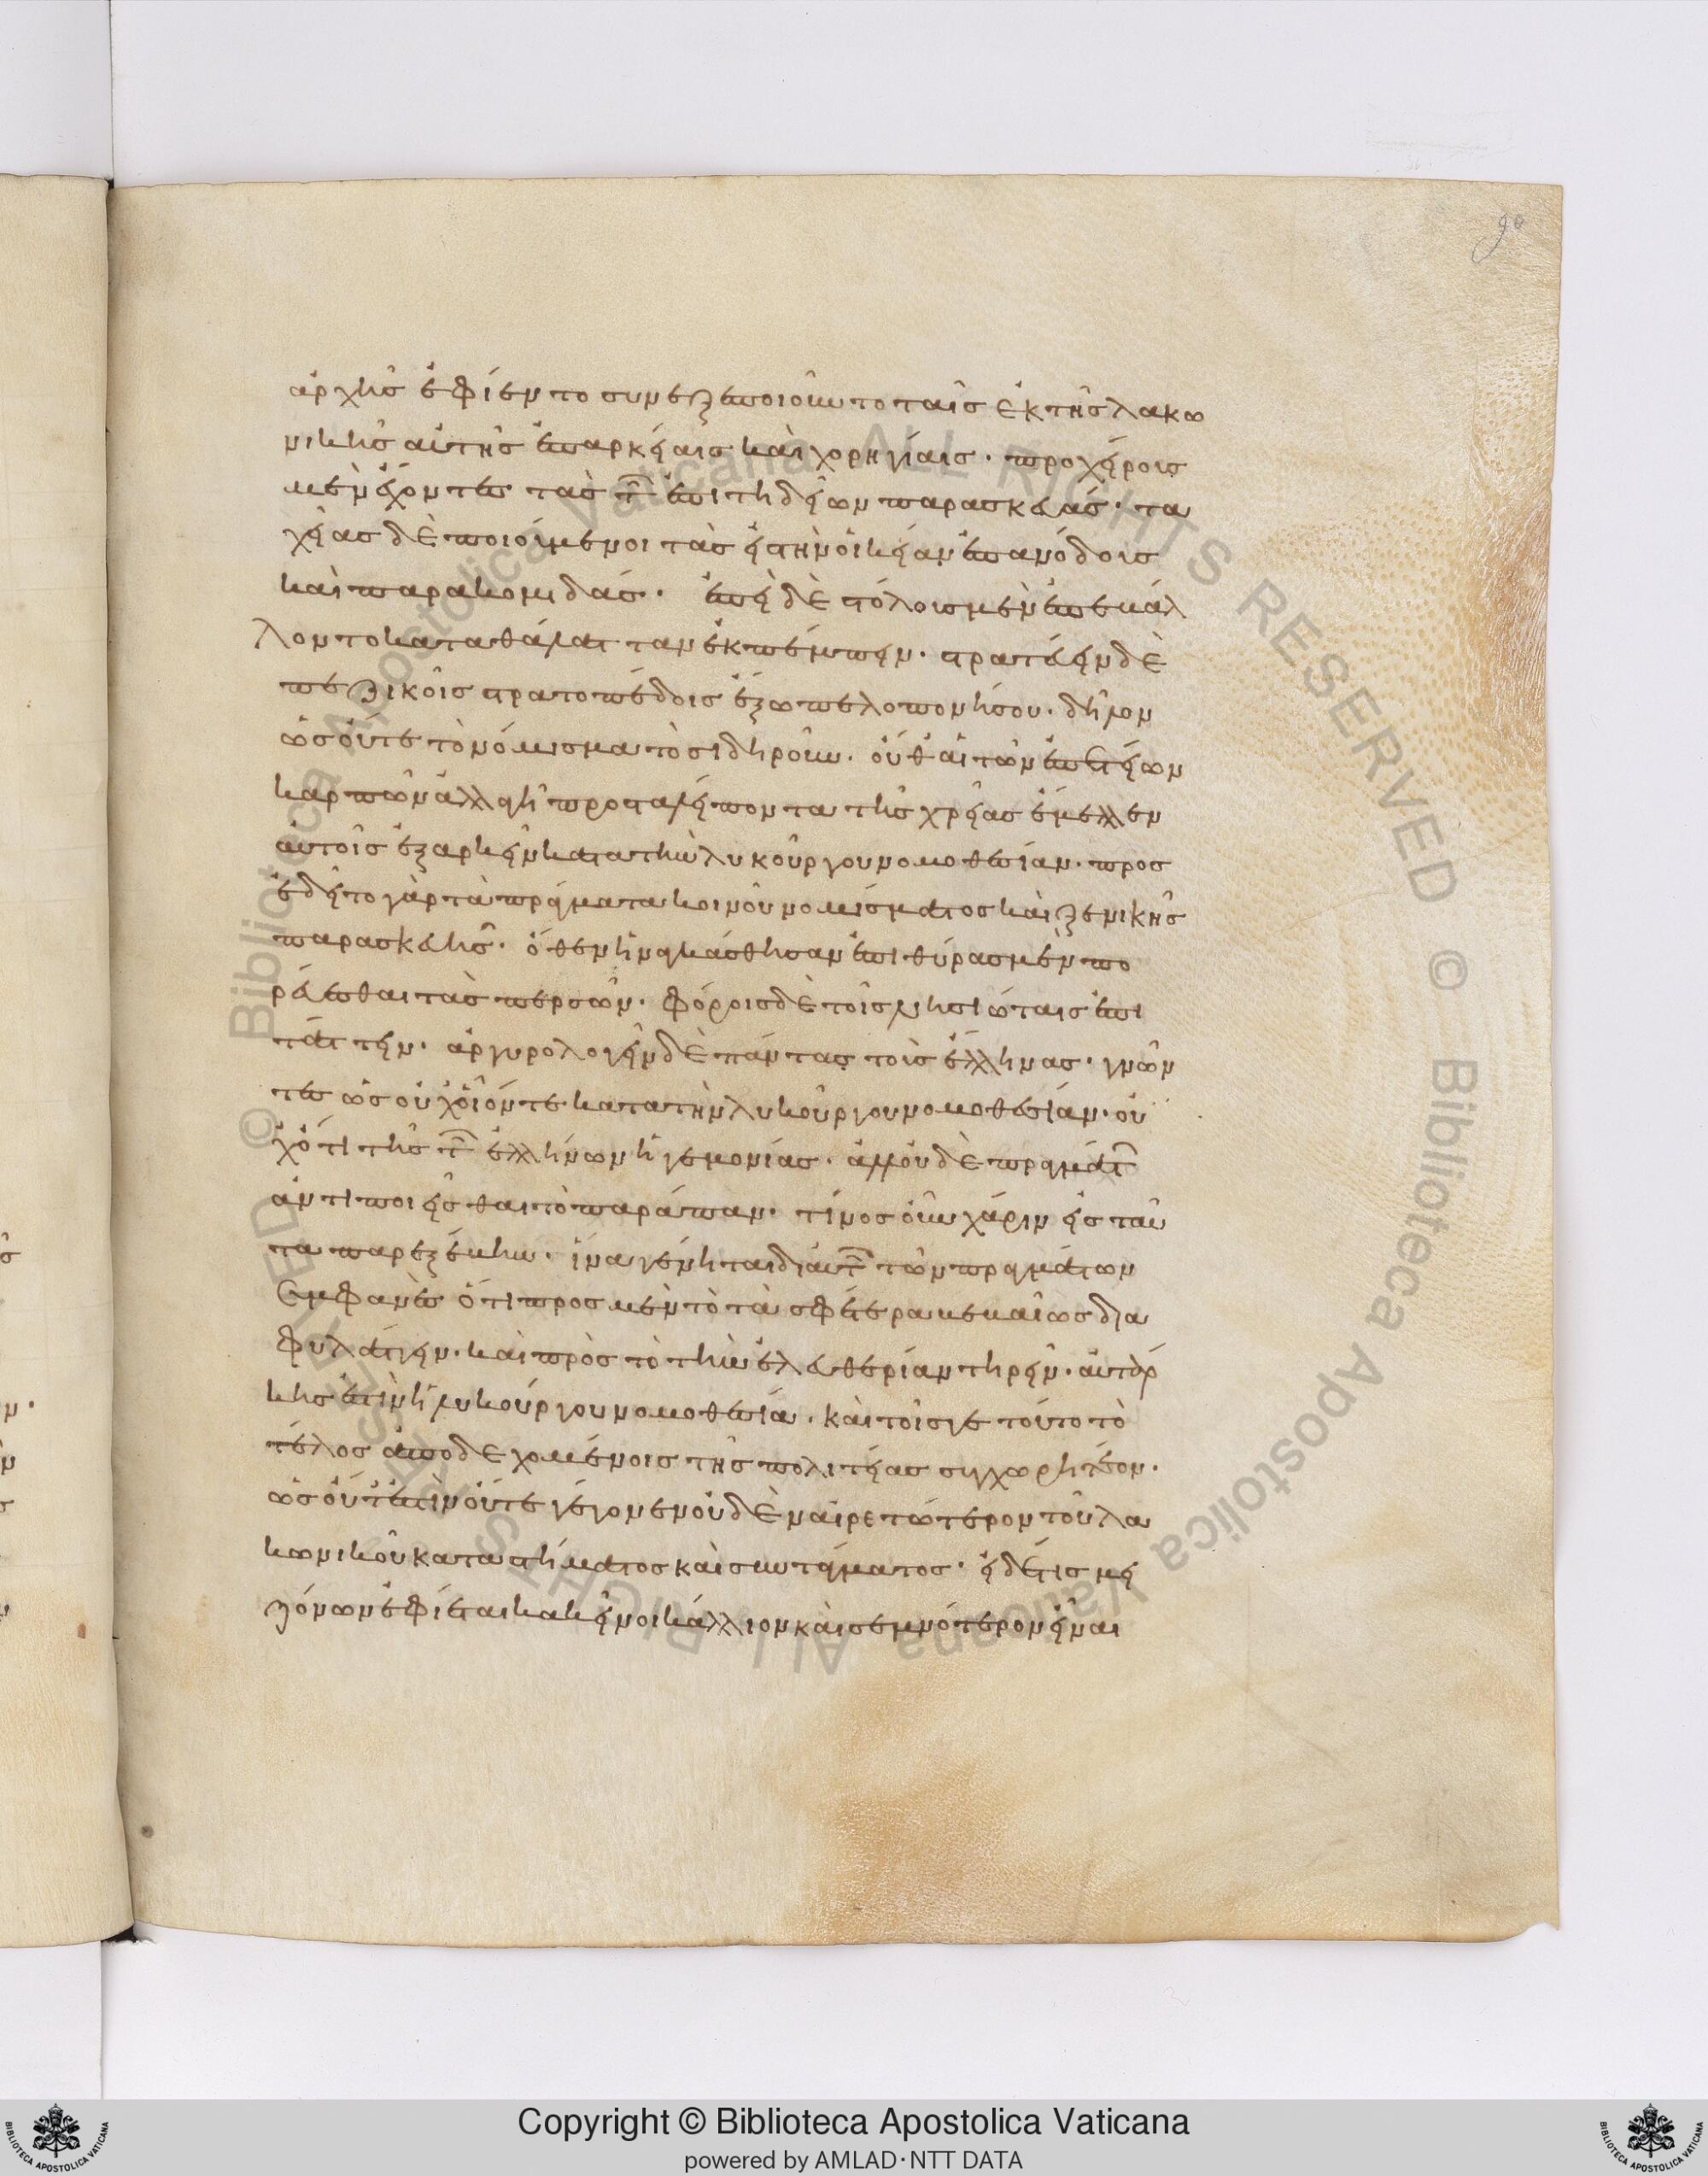 90
ἀρχῆσ ἐφίεντο συνεξεποιοῦντο ταῖσ ἐκ τῆσ λακω
νικῆσ αὐτῆσ ἐπαρκείαισ καὶ χορηγίαισ· προχείρουσ
μὲν ἔχοντεσ τὰσ τῶν ἐπιτηδείων παρασκευάσ· τα
χείασ δὲ ποιούμενοι τὰσ εἰσ τὴν οἰκείαν ἐπανόδουσ
καὶ παρακομιδάσ· ἐπεὶ δὲ στόλουσ μὲν ἐπεβάλ
λοντο κατὰ θάλατταν ἐκπέμπειν· στρατεύειν δὲ
πεζικοῖσ στρατοπέδοισ ἔξω πελοποννήσου· δῆλον
ὡσ οὔτε τὸ νόμισμα τὸ σιδηροῦν· οὔθ' αἱ τῶν ἐπετείων
καρπῶν ἀλλαγὴ πρὸσ τὰ λείποντα τῆσ χρείασ ἔμελλεν
αὐτοῖσ ἐξαρκεῖν κατὰ τὴν λυκούργου νομοθεσίαν· προσ
εδεῖτο γὰρ τὰ πράγματα κοινοῦ νομίσματοσ καὶ ξενικῆσ
παρασκευῆσ· ὅθεν ἠναγκάσθησαν ἐπὶ θύρασ μὲν πο
ρεύεσθαι τὰσ περσῶν· φόρουσ δὲ τοῖσ νησιώταισ ἐπι
τάττειν· ἀργυρολογεῖν δὲ πάντασ τοὺσ ἕλληνασ· γνῶν
τεσ ὡσ οὐχ οἷόν τε κατὰ τὴν λυκούργου νομοθεσίαν· οὐ
χ ὅτι τῆσ τῶν ἑλλήνων ἡγεμονίασ· ἀλλ' οὐδὲ πραγμάτων
ἀντιποιεῖσθαι τὸ παράπαν· τίνοσ οὖν χάριν εἰσ ταῦ
τα παρεξέβην· ἵνα γένηται δι' αὐτῶν τῶν πραγμάτων
ἐμφανὲσ ὅτι πρὸσ μὲν τὸ τὰ σφέτερα βεβαίωσ δια
φυλάττειν· καὶ πρὸσ τὸ τὴν ἐλευθερίαν τηρεῖν· αὐτάρ
κησ ἐστὶν ἡ λυκούργου νομοθεσία· καὶ τοῖσ γε τοῦτο τὸ
τέλοσ ἀποδεχομένοισ τῆσ πολιτείασ συγχωρητέον·
ὡσ οὔτ' ἔστιν οὔτε γέγονεν οὐδὲν αἱρετώτερον τοῦ λα
κωνικοῦ καταστήματοσ καὶ συντάγματοσ· εἰ δέ τισ μει
ζόνων ἐφίεται κἀκεῖνο κάλλιον καὶ σεμνότερον εἶναι
Copyright © Biblioteca Apostolica Vaticana
powered by AMLAD·NTT DATA